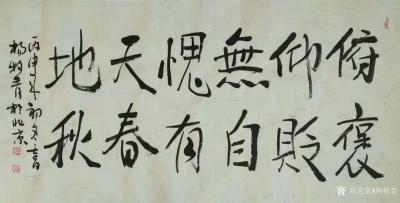 俯仰無愧天地
褒貶自有春秋
丙申年初冬
楊牧青於北京
@杨牧青